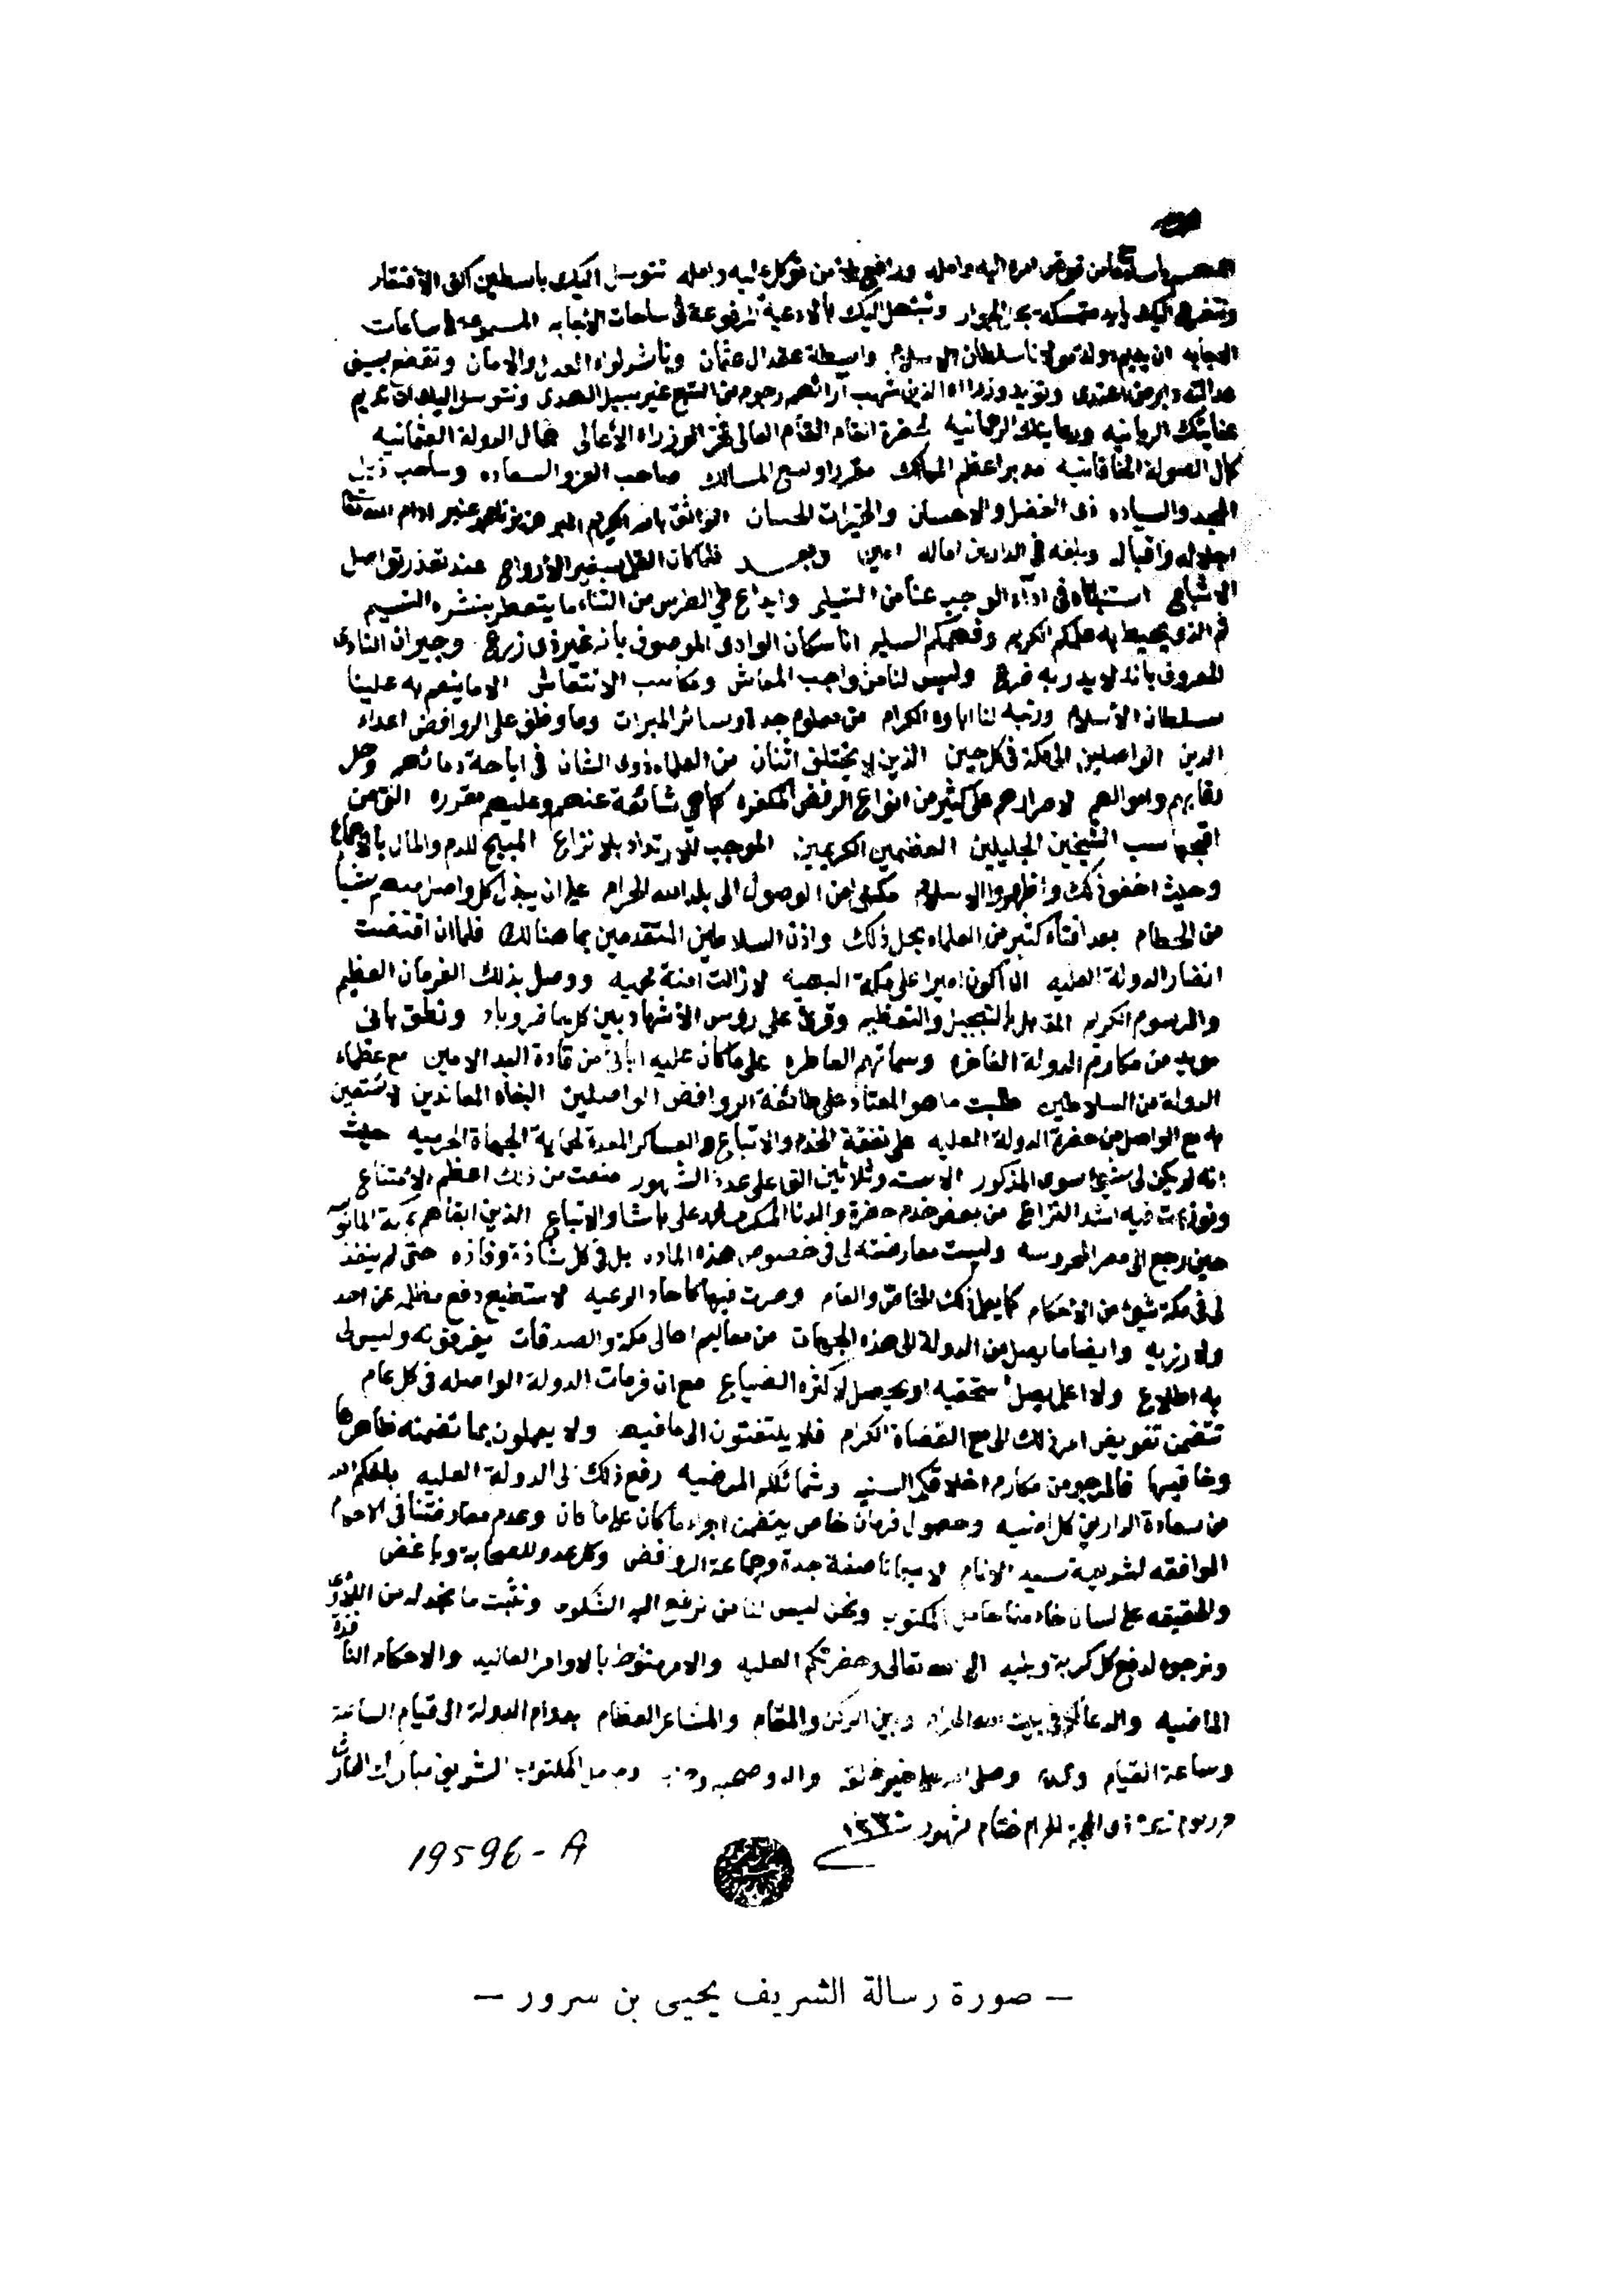 من فوض امره اليه وامله ودافع من توكل عليه وامله نتوسل اليك باسطين اكف الافتقار
ونتضرع اليك متمسكة الجوار ونبتهل اليك بالادعية المرفوعة في ساحات الاجابه المسموعة في ساعات
ان يديم دولة مولانا سلطان الاسلام واسطة عقد ال عثمان وناشر لواء العدل والامان وتقطع بسيف
عدالته دابر من اعتدى وتؤيد وزراءه الذين شهب ارائهم رجوم من اتبع غير سبيل الهدى ونتوسل اليك ان تديم
عنايتك الربانيه ورعايتك الرحمانيه لحضرة المقام العالى فخر الوزراء الأعالى جمال الدولة العثمانيه
كمال الصولة الخاقانيه مدبر اعظم الممالك مقرر اوسع المسالك صاحب العز والسعاده وساحب ذيل
المجد والسياده ذى الفضل والاحسان والخيرات الحسان الواثق بالله الكريم ادام الله تعالى
اجلاله واقباله وبلغه في الدارين اماله امين وبعد فلما كان القلم سفير الأرواح عند تعذر تواصل
الاشباح استنبناه في اداء الواجب عنا من التسليم وايداع طي الطرس من الثناء ما يتعطر بنشره النسيم
ثم الذي يحيط به علمكم الكريم وفهمكم السليم انا سكان الوادى الموصوف بأنه غير ذى زرع وجيران النادى
المعروف بانه لا يدر به ضرع وليس لنا من واجب المعاش ومكاسب الانتعاش الا ما ينعم به علينا
سلطان الأسلام ورتبه لنا اباوه الكرام من معلوم جدة وسائر المبرات وما وظف على الروافض اعداء
الدين الواصلين الى مكة في كل حين الذين لا يختلف اثنان من العلماء ذوى الشان في اباحة دمائهم وحل
رقابهم واموالهم لاصرارهم على كثير من انواع الرفض المكفره كما هي شائعة عنهم وعليهم مقرره التي من
اقبحها سب الشيخين الجليلين العظيمين الكريمين الموجب للارتداد بلا نزاع المبيح للدم والمال بالاجماع
وحيث اخفوا ذلك واظهروا الاسلام مكنوا من الوصول الى بلد الله الحرام على ان يبذل كل واصل منهم شيأ
من الحطام بعد افتاء كثير من العلماء بحل ذلك واذن السلاطين المتقدمين بما هنالك فلما ان اقتضت
انظار الدولة العليه ان أكون اميرا على مكة البهيه لا زالت امنة محميه ووصل بذلك الفرمان العظيم
والمرسوم الكريم المقابل بالتبجيل والتعظيم وقرئ على روس الأشهاد بين كل حاضر وباد ونطق بانى
مويد من مكارم الدولة الفاخره وسماتهم العاطره على ما كان عليه ابائى من قادة البلد الامين مع عظماء
الدولة من السلاطين طلبت ما هو المعتاد على طائفة الروافض الواصلين البغاه المعاندين لاستعين
به مع الواصل من حضرة الدولة العليه على نفقة الخدم والاتباع والعساكر المعدة لحماية الجهاة الحرميه حيث
انه لم يكن لى شيئ سوى المذكور الا ستة وثلاثين الفا على عدة الشهور منعت من ذلك اعظم الامتناع
ونوزعت فيه اشد النزاع من بعض خدم حضرة والدنا المكرم محمد على باشا والاتباع الذين ابقاهم بمكة المانوسه
حين رجع الى مصر المحروسه وليست معارضته لى في خصوص هذه الماده بل في كل شاذة وفاذه حتى لم ينفذ
لى في مكة شيئ من الاحكام كما يعلم ذلك الخاص والعام وصرت فيها كاحاد الرعيه لا استطيع دفع مظلمه عن احد
ولا رزيه وايضا ما يصل من الدولة الى هذه الجهات من معاليم اهالى مكة والصدقات يفرقونه وليس لى
به اطلاع ولا اعلم يصل مستحقيه او يحصل لاكثره الضياع مع ان فرمانات الدولة الواصله في كل عام
تتضمن تفويض امر ذلك الى مع القضاة الكرام فلا يلتفتون الى ما فيه ولا يعملون بما تضمنه ظاهرها
وخافيها فالمرجو من مكارم اخلاقكم السنيه وشمائلكم المرضيه رفع ذلك الى الدولة العليه بلغكم الله
من سعادة الدارين كل امنيه وحصول فرمان خاص يتضمن اجراء ما كان على ما كان وعدم معارضتنا في الاحكام
الموافقه لشريعة سيد الانام لا سيما ناصفة جدة وجماعة الروافض وكل عدو للصحابة وباغض
والحقيقه على لسان خادمنا حامل المكتوب ونحن ليس لنا من نرفع اليه الشكوى ونثبت ما نجد له من اللأوى
ونرجوه لدفع كل كربة وبليه الا الله تعالى وحضرتكم العليه والامر منوط بالاوامر العاليه والاحكام النافذة
الماضيه والدعا لكم في بيت الله الحرام وبين الركن والمقام والمشاعر العظام بدوام الدولة الى قيام الساعة
وساعة القيام وصلى الله على خير خلقه واله وصحبه وحامل المكتوب الشريف مبارك الحارث
ذى الحجة الحرام ختام شهور
19596 - A
– صورة رسالة الشريف يحيى بن سرور –